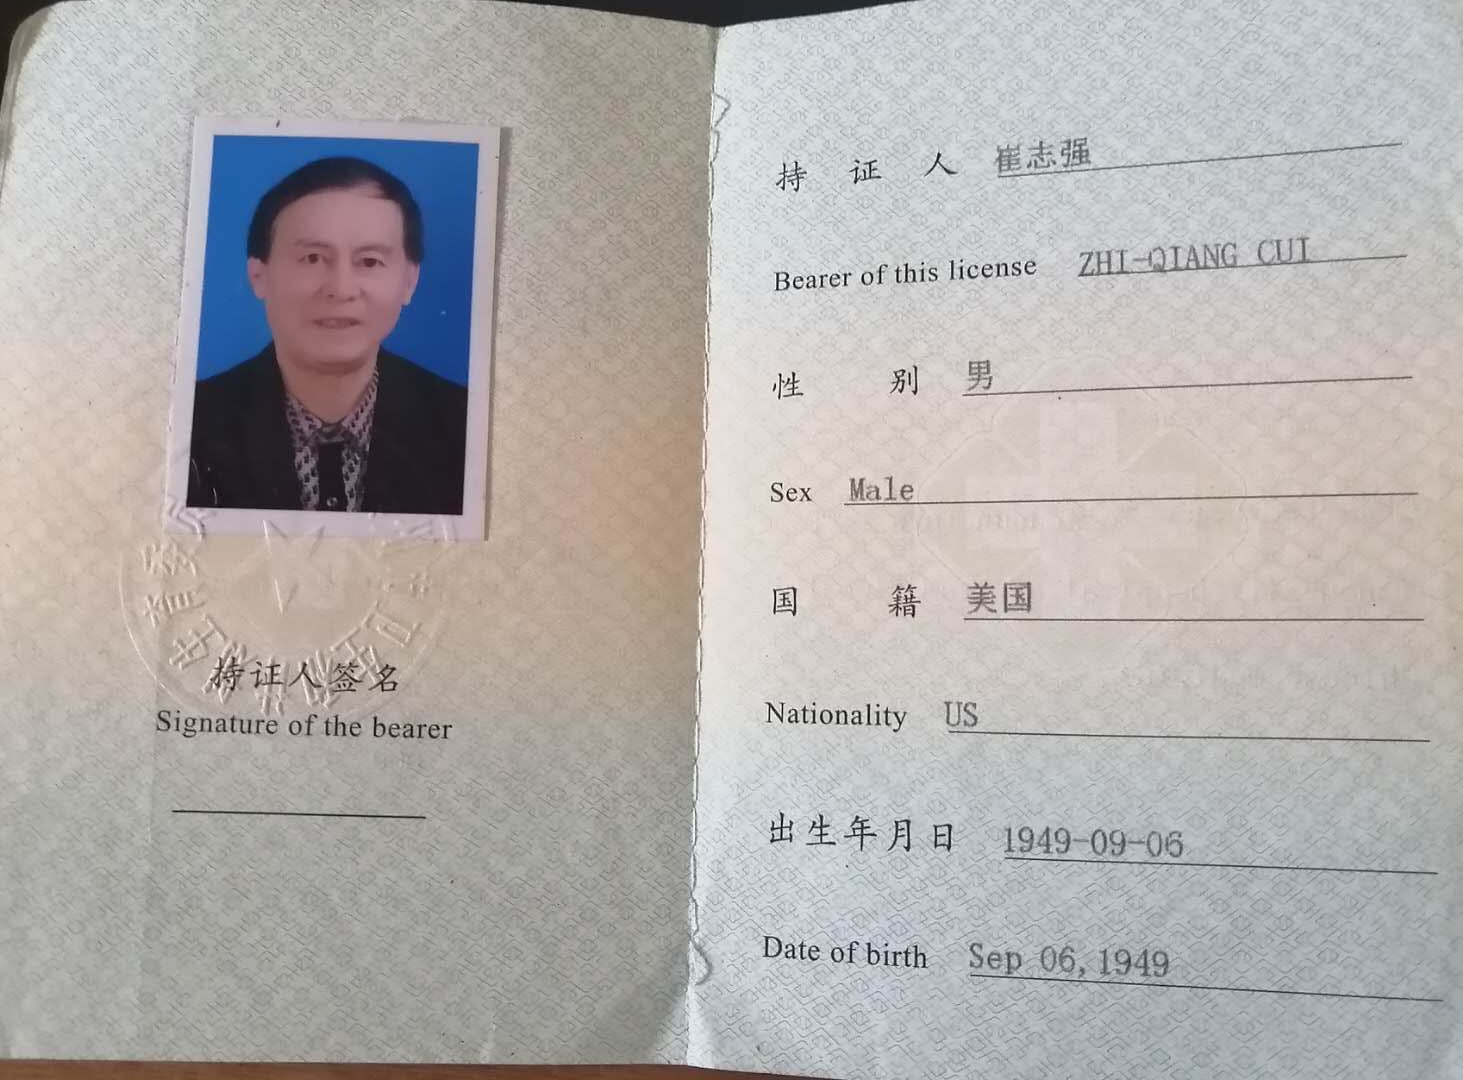 持证人签名
Signature of the bearer
持 证 人 崔志强
Bearer of this license ZHI-QIANG CUI
性 别 男
Sex Male
国 籍 美国
Nationality US
出生年月日 1949-09-06
Date of birth Sep 06, 1949